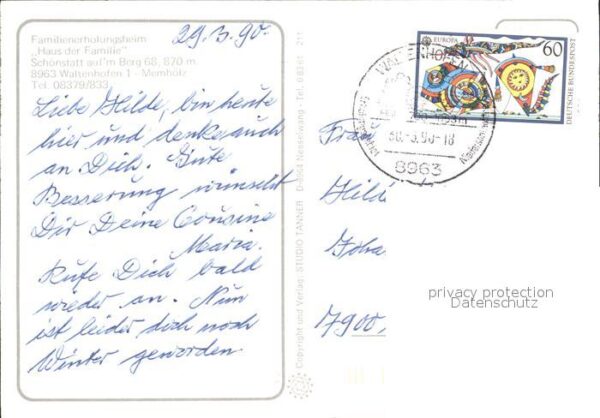 29.3.90.
Familienerholungsheim
"Haus der Familie"
Schönstatt auf'm Berg 68, 870 m.
8963 Waltenhofen 1 - Memhölz
Tel. 08379/833
Liebe Hilde, bin heute
hier und denke auch
an Dich. Gute
Besserung wünscht
Dir Deine Cousine
Maria.
Rufe Dich bald
wieder an. Nun
ist leider doch noch
Winter geworden
Copyright und Verlag: STUDIO TANNER
EUROPA
60
DEUTSCHE BUNDESPOST
8963
Frau
Hild
Joha
7900,
privacy protection
Datenschutz